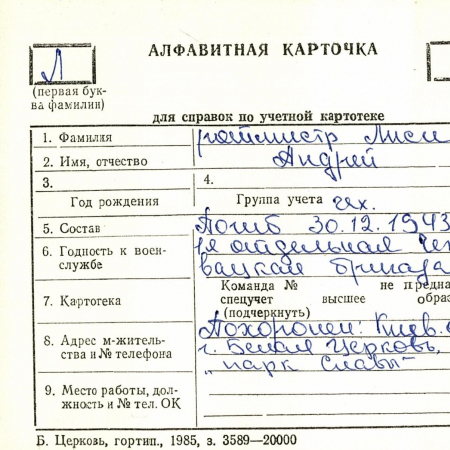 Л
АЛФАВИТНАЯ КАРТОЧКА
(первая бук-
ва фамилии)
для справок по учетной картотеке
1. Фамилия ротмистр Лиси
2. Имя, отчество Андрей
3. 4.
Год рождения Группа учета чех.
5. Состав Погиб 30.12.1943
6. Годность к воен- 1я отдельная чех
службе вацкая бригада
7. Картотека Команда № не предна
спецучет высшее образ
(подчеркнуть)
8. Адрес м-житель- Похоронен: Киев. о
ства и № телефона г. Белая Церковь,
„парк Славы"
9. Место работы, дол-
жность и № тел. ОК
Б. Церковь, гортип., 1985, з. 3589—20000